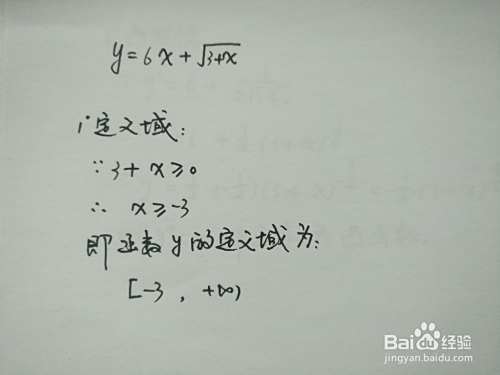 y=6x+√3+x
1°定义域:
∵3+x≥0
∴ x≥-3
即函数y的定义域为:
[-3 , +∞)
Baidu 经验
jingyan.baidu.com